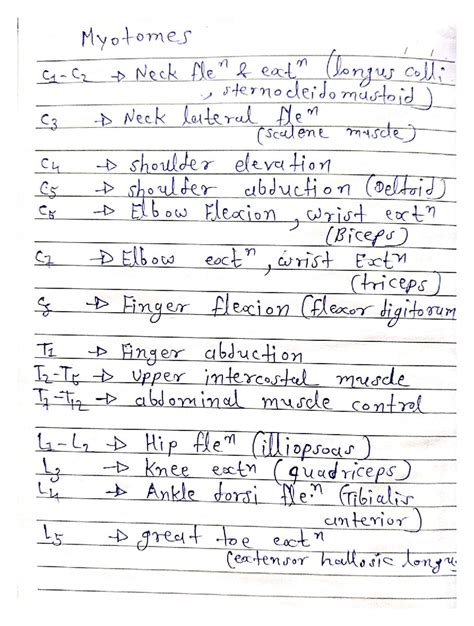 Myotomes
C1-C2 → Neck fleⁿ & extⁿ (longus colli
, sternocleidomastoid)
C3 → Neck lateral fleⁿ
(scalene muscle)
C4 → shoulder elevation
C5 → shoulder abduction (Deltoid)
C6 → Elbow Flexion, wrist extⁿ
(Biceps)
C7 → Elbow extⁿ, wrist Extⁿ
(triceps)
C8 → Finger flexion (flexor digitorum
T1 → Finger abduction
T2-T6 → upper intercostal muscle
T7-T12 → abdominal muscle control
L1-L2 → Hip fleⁿ (illiopsoas)
L3 → Knee extⁿ (quadriceps)
L4 → Ankle dorsi fleⁿ (Tibialis
anterior)
L5 → great toe extⁿ
(extensor hallosic longu